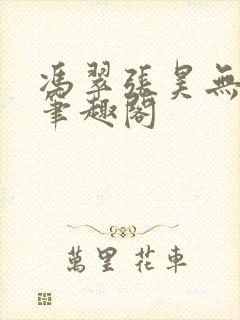 馮翠張昊無
筆趣閣
萬里花車